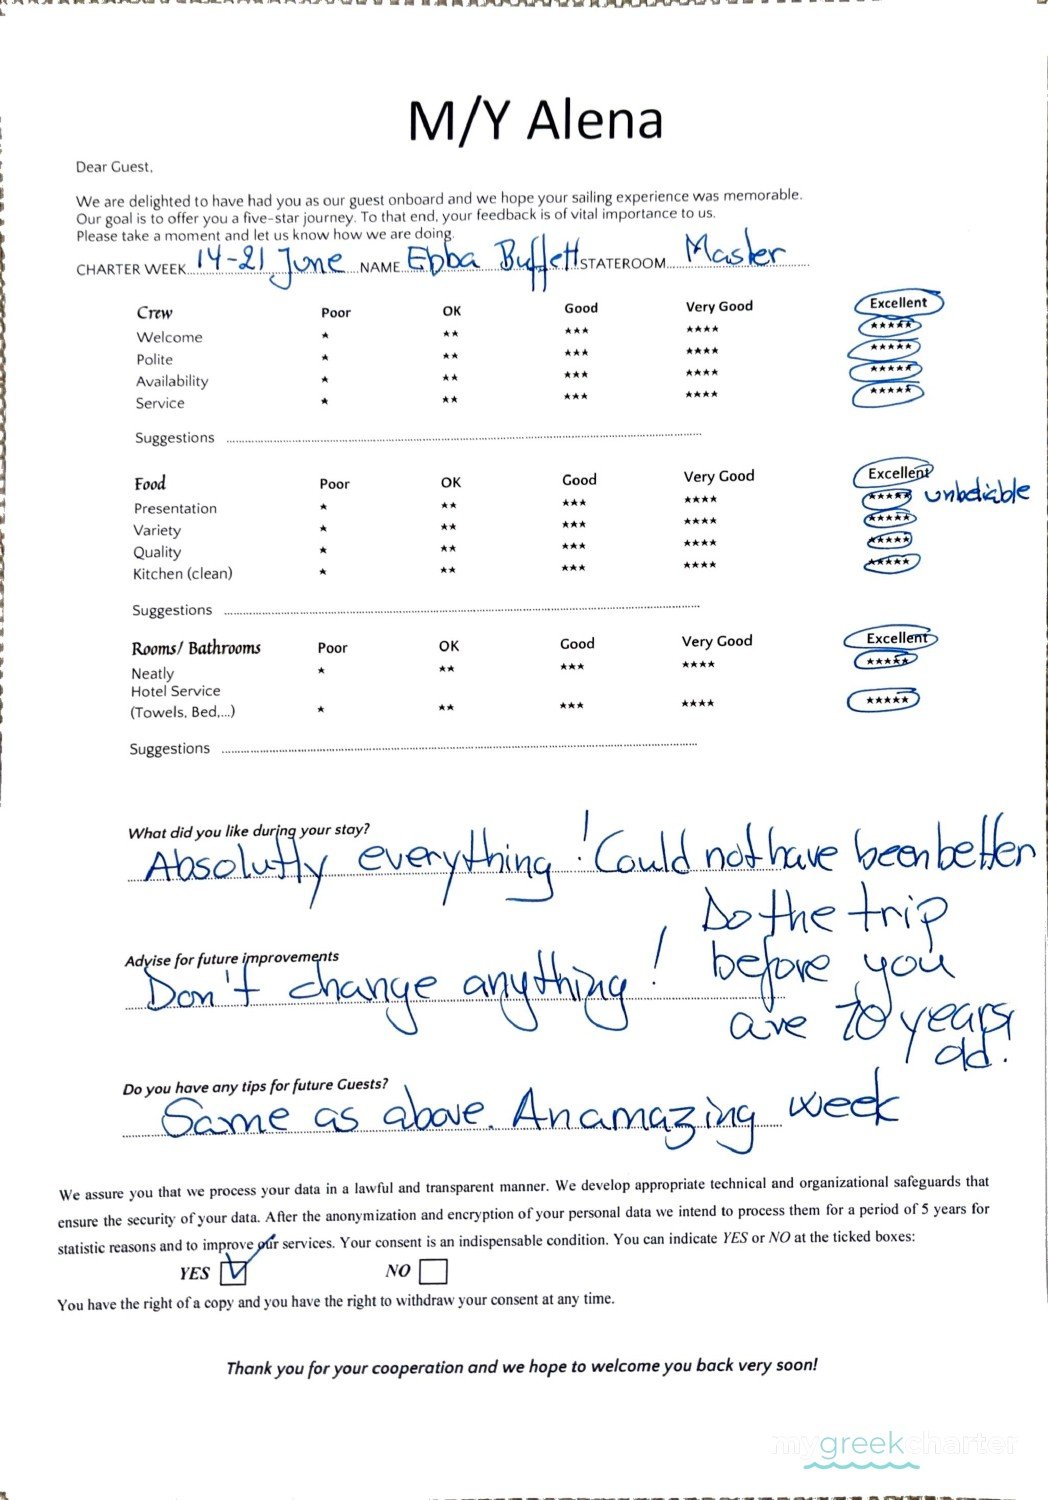 M/Y Alena
Dear Guest,
We are delighted to have had you as our guest onboard and we hope your sailing experience was memorable.
Our goal is to offer you a five-star journey. To that end, your feedback is of vital importance to us.
Please take a moment and let us know how we are doing.
CHARTER WEEK 14-21 June NAME Ebba Buffett STATEROOM Master
Crew Poor OK Good Very Good Excellent
Welcome * ** *** **** *****
Polite * ** *** **** *****
Availability * ** *** **** *****
Service * ** *** **** *****
Suggestions
Food Poor OK Good Very Good Excellent
Presentation * ** *** **** ***** unbeliable
Variety * ** *** **** *****
Quality * ** *** **** *****
Kitchen (clean) * ** *** **** *****
Suggestions
Rooms/ Bathrooms Poor OK Good Very Good Excellent
Neatly * ** *** **** *****
Hotel Service
(Towels, Bed,...) * ** *** **** *****
Suggestions
What did you like during your stay?
Absolutly everything! Could not have been better
Advise for future improvements
Don't change anything!
Do the trip
before you
are 70 years
old.
Do you have any tips for future Guests?
Same as above. An amazing week
We assure you that we process your data in a lawful and transparent manner. We develop appropriate technical and organizational safeguards that
ensure the security of your data. After the anonymization and encryption of your personal data we intend to process them for a period of 5 years for
statistic reasons and to improve our services. Your consent is an indispensable condition. You can indicate YES or NO at the ticked boxes:
YES NO
You have the right of a copy and you have the right to withdraw your consent at any time.
Thank you for your cooperation and we hope to welcome you back very soon!
mygreekcharter